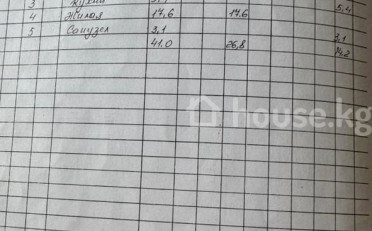 3 Кухня 5,4
4 Жилая 17,6 17,6
5 Санузел 3,1 3,1
41,0 26,8 14,2
house.kg